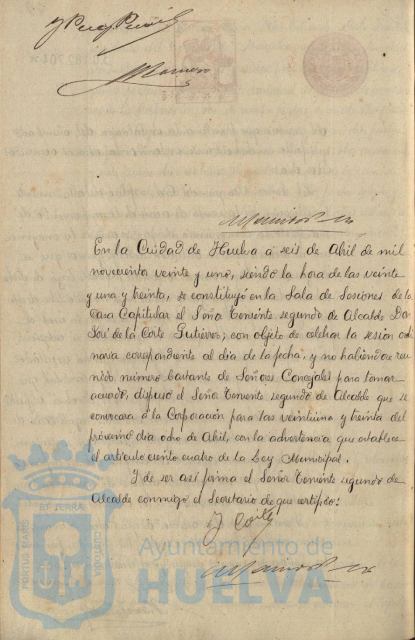 En la Ciudad de Huelva á seis de Abril de mil
novecientos veinte y uno, siendo la hora de las veinte
y una y treinta, se constituyó en la Sala de Sesiones de la
Casa Capitular el Señor Teniente segundo de Alcalde Don
José de la Corte Gutierrez; con objeto de celebrar la sesion ordi
naria correspondiente al dia de la fecha, y no habiendose reu
nido número bastante de Señores Concejales para tomar
acuerdo, dispuso el Señor Teniente segundo de Alcalde que se
convocara á la Corporación para las veintiuna y treinta del
próximo dia ocho de Abril, con la advertencia que establece
el artículo ciento cuatro de la Ley Municipal.
Y de ser así firma el Señor Teniente segundo de
Alcalde conmigo el Secretario de que certifico:
J Corte
Ayuntamiento de
HUELVA
PORTUS MARIS
ET TERRÆ
CUSTODIA